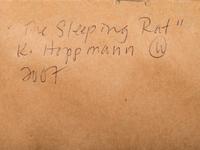 "The Sleeping Rat"
K. Hoppmann W
2007